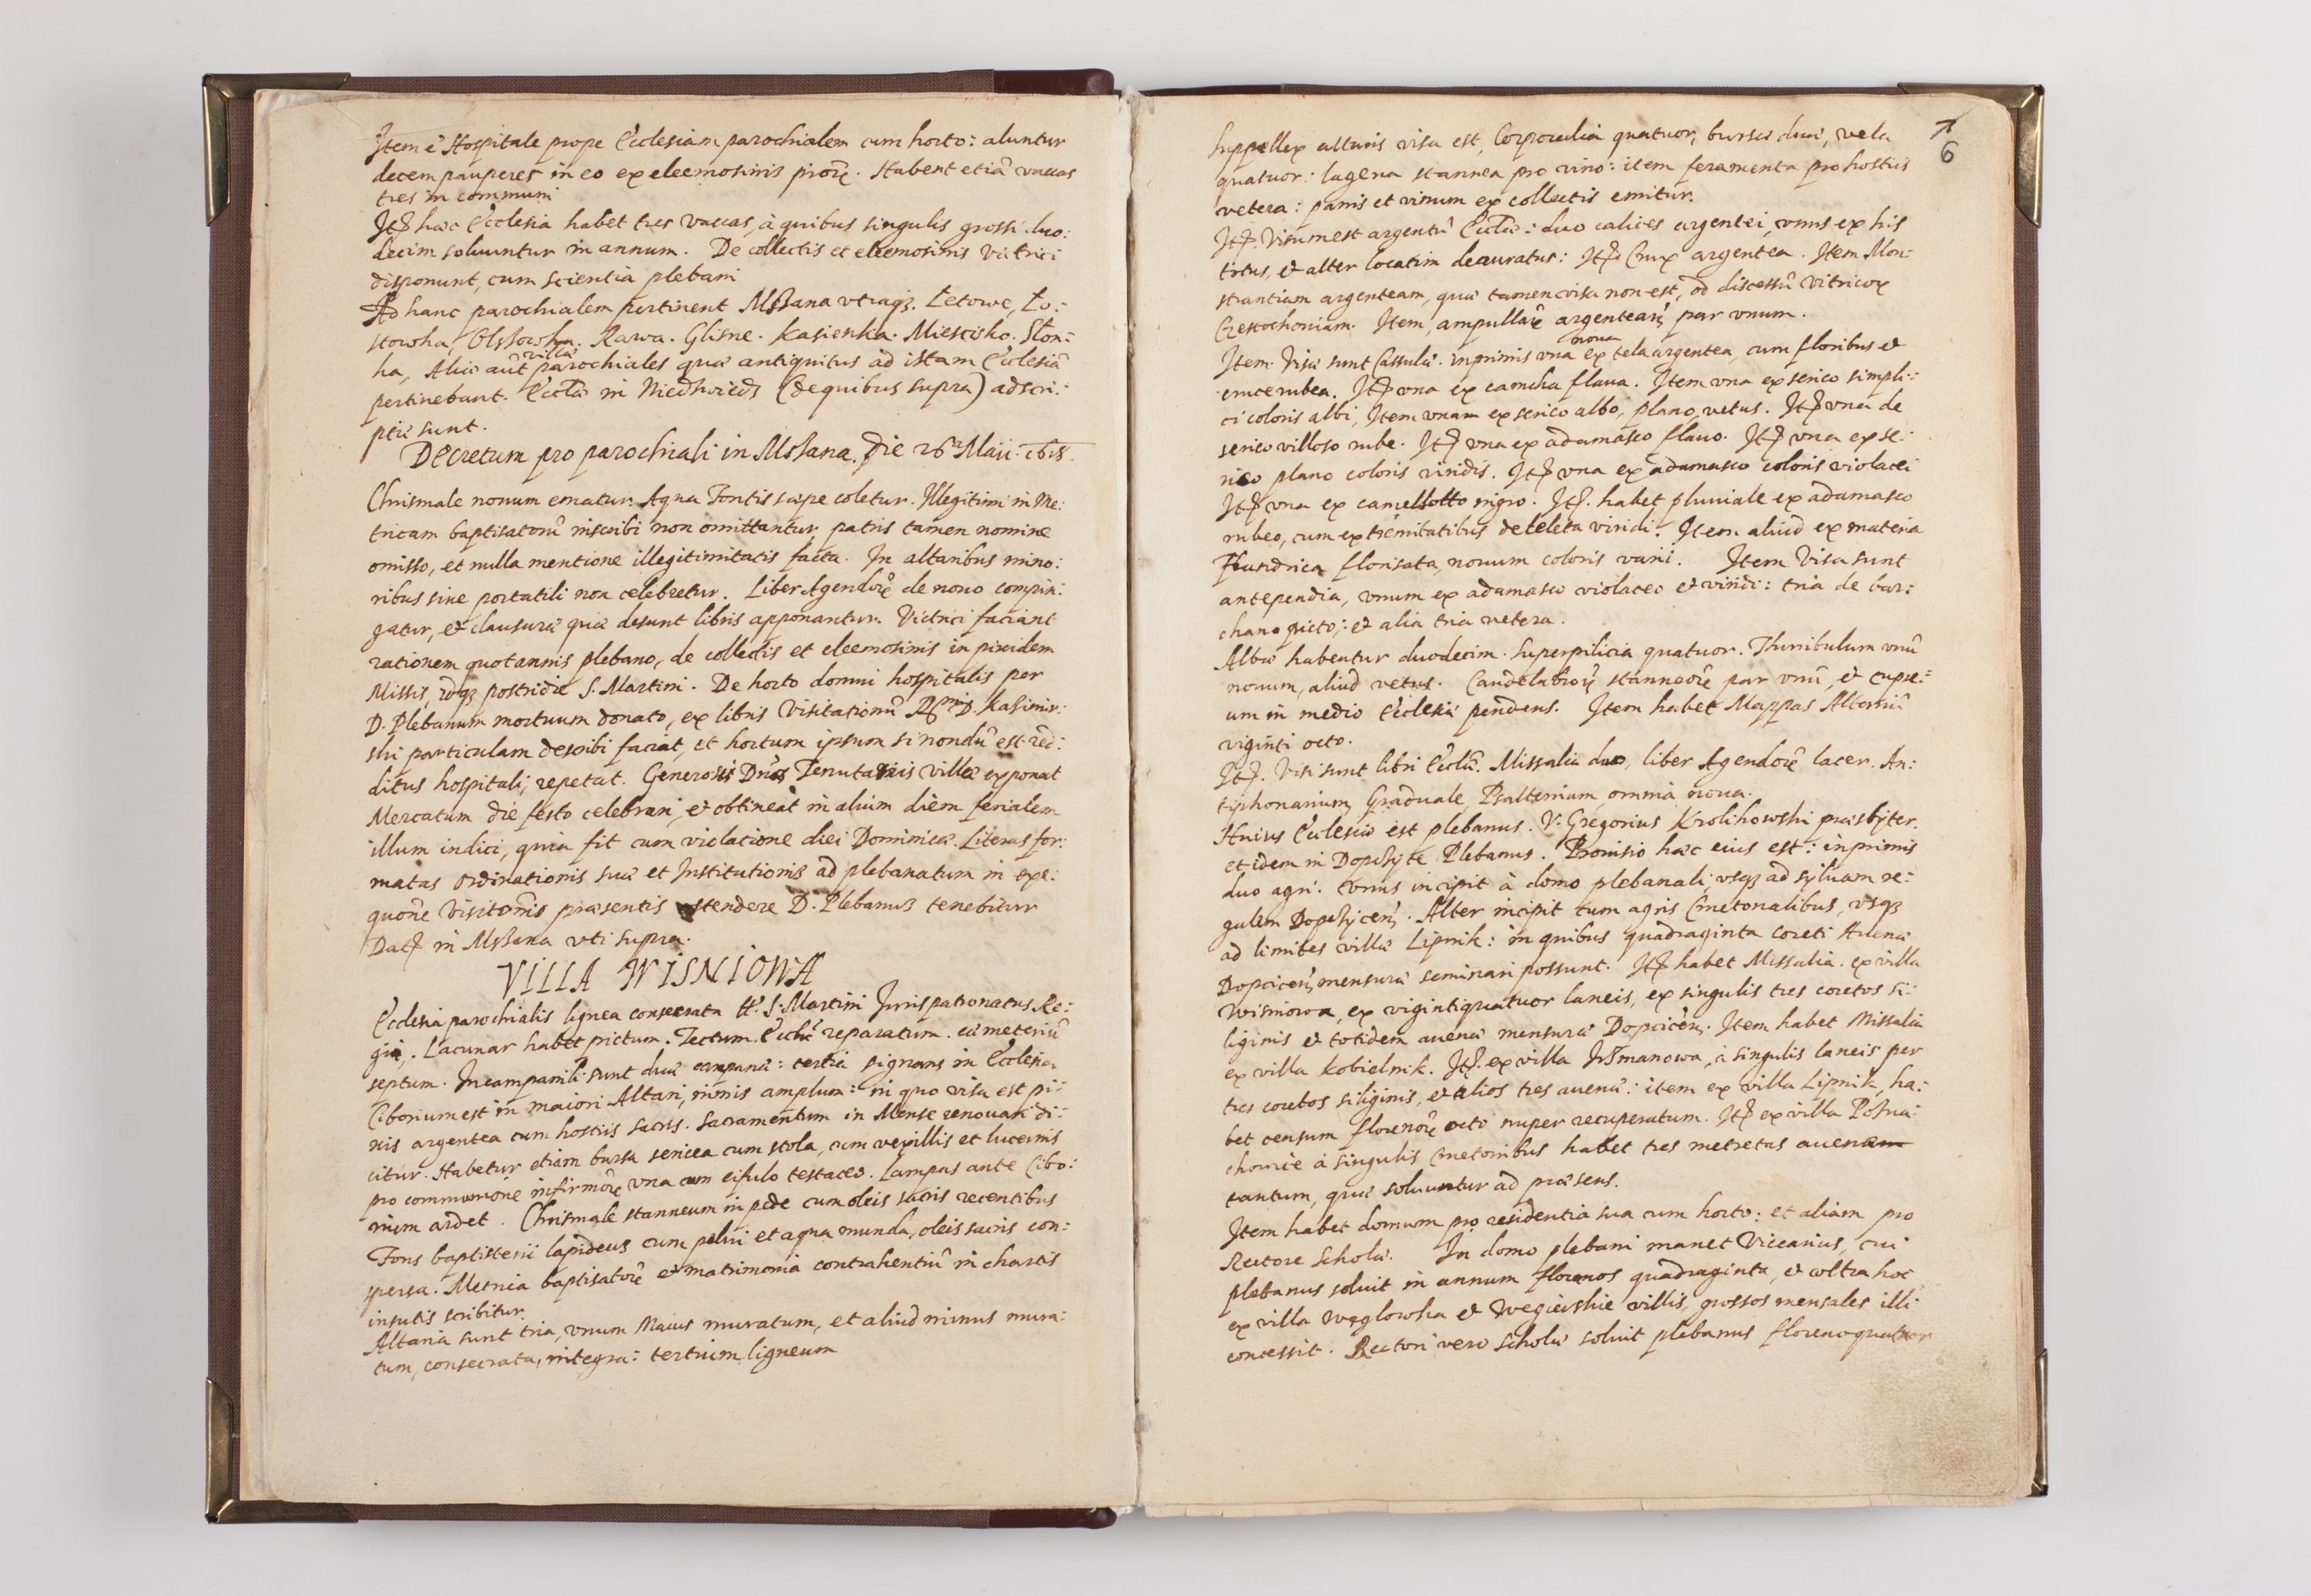 Item ẽ Hospitale prope Ecclesiam parochialem cum horto: aluntur
decem pauperes in eo ex eleemosinis piorũ. Habent etiã vaccas
tres in communi
Itẽ hæc Ecclesia habet tres vaccas, à quibus singulis grossi duo:
decim soluuntur in annum. De collectis et eleemosinis vitrici
disponunt, cum scientia plebani
Ad hanc parochialem pertinent Mszana vtraqȝ. Łetowe, Ło:
stowka, Olszowka. Rawa. Glisne. Kasienka. Miescisko. Slon:
villæ
ka, Aliæ aũt parochiales quæ antiquitus ad istam Ecclesiã
pertinebant. Ecclæ in Niedzwiedz (de quibus supra) adscri:
ptæ sunt.
Decretum pro parochiali in Mszana. Die 26ta Maii 1618.
Chrismale nouum ematur. Aqua Fontis sæpe coletur. Illegitimi in Me:
tricam baptisatorũ inscribi non omittantur, patris tamen nomine
omisso, et nulla mentione illegitimitatis facta. In altaribus mino:
ribus sine portatili non celebretur. Liber Agendorũ de nouo compin:
gatur, et clausuræ quæ desunt libris apponantur. Vitrici faciant
rationem quotannis plebano, de collectis et eleemosinis in pixidem
Missis, idqȝ postridie S. Martini. De horto domui hospitalis per
D. Plebanum mortuum donato, ex libris Visitationũ Rssmi D. Kasimir:
ski particulam describi faciat, et hortum ipsum si nondũ est red:
ditus hospitali, repetat. Generosis Dnis Tenutariis villæ exponat
Mercatum die festo celebrari, et obtineat in alium diem ferialem
illum indici, quia fit cum violatione diei Dominicæ. Literas for:
matas ordinationis suæ et Institutionis ad plebanatum in exe:
quõne Visitõnis præsentis ostendere D. Plebanus tenebitur
Datʒ in Mszana vti supra.
VILLA WISNIOWA
Ecclesia parochialis lignea consecrata tt. S. Martini Jurispatronatus Re:
gii. Lacunar habet pictum. Tectum Ecclæ reparatum. cœmeteriũ
septum. In campanili sunt duæ campanæ: tertia signans in Ecclesia
Ciborium est in maiori Altari, nimis amplum: in quo visa est pi:
xis argentea cum hostiis sacris. Sacramentum in Mense renouari di:
citur. Habetur etiam bursa sericea cum stola, cum vexillis et lucernis
pro communiõne infirmorũ vna cum cifulo testaceo. Lampas ante Cibo:
rium ardet. Chrismale stanneum in pede cum oleis sacris recentibus
Fons baptisterii lapideus cum pelui et aqua munda, oleis sacris con:
spersa. Metrica baptisatorũ et matrimonia contrahentiũ in chartis
insutis scribitur.
Altaria sunt tria, vnum Maius muratum, et aliud minus mura:
tum, consecrata, integra: tertium ligneum
7
6
Suppellex altaris visa est, Corporalia quatuor, bursæ duæ, vela
quatuor: lagena stannea pro vino: item feramenta pro hostiis
vetera: panis et vinum ex collectis emitur.
Itẽ. Visum est argentũ Ecclæ: duo calices argentei, vnus ex his
totus, et alter locatim deauratus: Itẽ Crux argentea. Item Mon:
strantiam argenteam, quæ tamen visa non est, ob discessũ vitricorũ
Czestochoniam. Item, ampullarũ argentearũ par vnum.
noua
Item. Visæ sunt Casulæ. inprimis vna ex tela argentea, cum floribus et
cruce rubea. Itẽ vna ex camcha flaua. Item vna ex serico simpli:
ci coloris albi, Item vnam ex serico albo, plano, vetus. Itẽ vna de
serico villoso rube. Itẽ vna ex adamasco flauo. Itẽ vna ex se:
rico plano coloris viridis. Itẽ vna ex adamasco coloris violacei
Itẽ vna ex camelotto nigro. Itẽ. habet pluuiale ex adamasco
rubeo, cum extremitatibus de teleta viridi. Item aliud ex materia
Flandrica florisata, nouum coloris varii. Item Visa sunt
antependia, vnum ex adamasco violaceo et viridi: tria de bar:
chano picto; et alia tria vetera.
Albæ habentur duodecim. Superpilicia quatuor. Thuribulum vnũ
nouum, aliud vetus. Candelabrorũ stanneorũ par vnũ, et cupre:
um in medio Ecclesiæ pendens. Item habet Mappas Altariũ
viginti octo.
Itẽ. Visi sunt libri Ecclæ. Missalia duo, liber Agendorũ lacer. An:
tiphonarium, Graduale, Psalterium, omnia noua.
Huius Ecclesiæ est plebanus. V. Gregorius Krolikowski præsbyter.
et idem in Dopczyce Plebanus. Prouisio hæc eius est: inprimis
duo agri. vnus incipit à domo plebanali, vsqȝ ad syluam re:
galem Dopczycen. Alter incipit cum agris Cmetonalibus, vsqȝ
ad limites villæ Lipnik: in quibus quadraginta coreti Auenæ
Dopcicen mensuræ seminari possunt. Itẽ habet Missalia. ex villa
Wisniowa, ex vigintiquatuor laneis, ex singulis tres coretos si:
liginis et totidem auenæ mensuræ Dopcicen. Item habet Missalia
ex villa Kobielnik. Itẽ. ex villa Irzmanowa, à singulis laneis per
tres coretos siliginis, et alios tres auenæ: item ex villa Lipnik, ha:
bet censum florenorũ octo nuper recuperatum. Itẽ ex villa Pozna:
chowice à singulis Cmetonibus habet tres metretas auenam
tantum, quæ soluuntur ad præsens.
Item habet domum pro residentia sua cum horto: et aliam pro
Rectore Scholæ. In domo plebani manet Viccarius, cui
plebanus soluit in annum florenos quadraginta, et vltra hoc
ex villa Węglowka et Wegierskie villis, grossos mensales illi
concessit. Rectori vero Scholæ soluit plebanus florenoquatuor